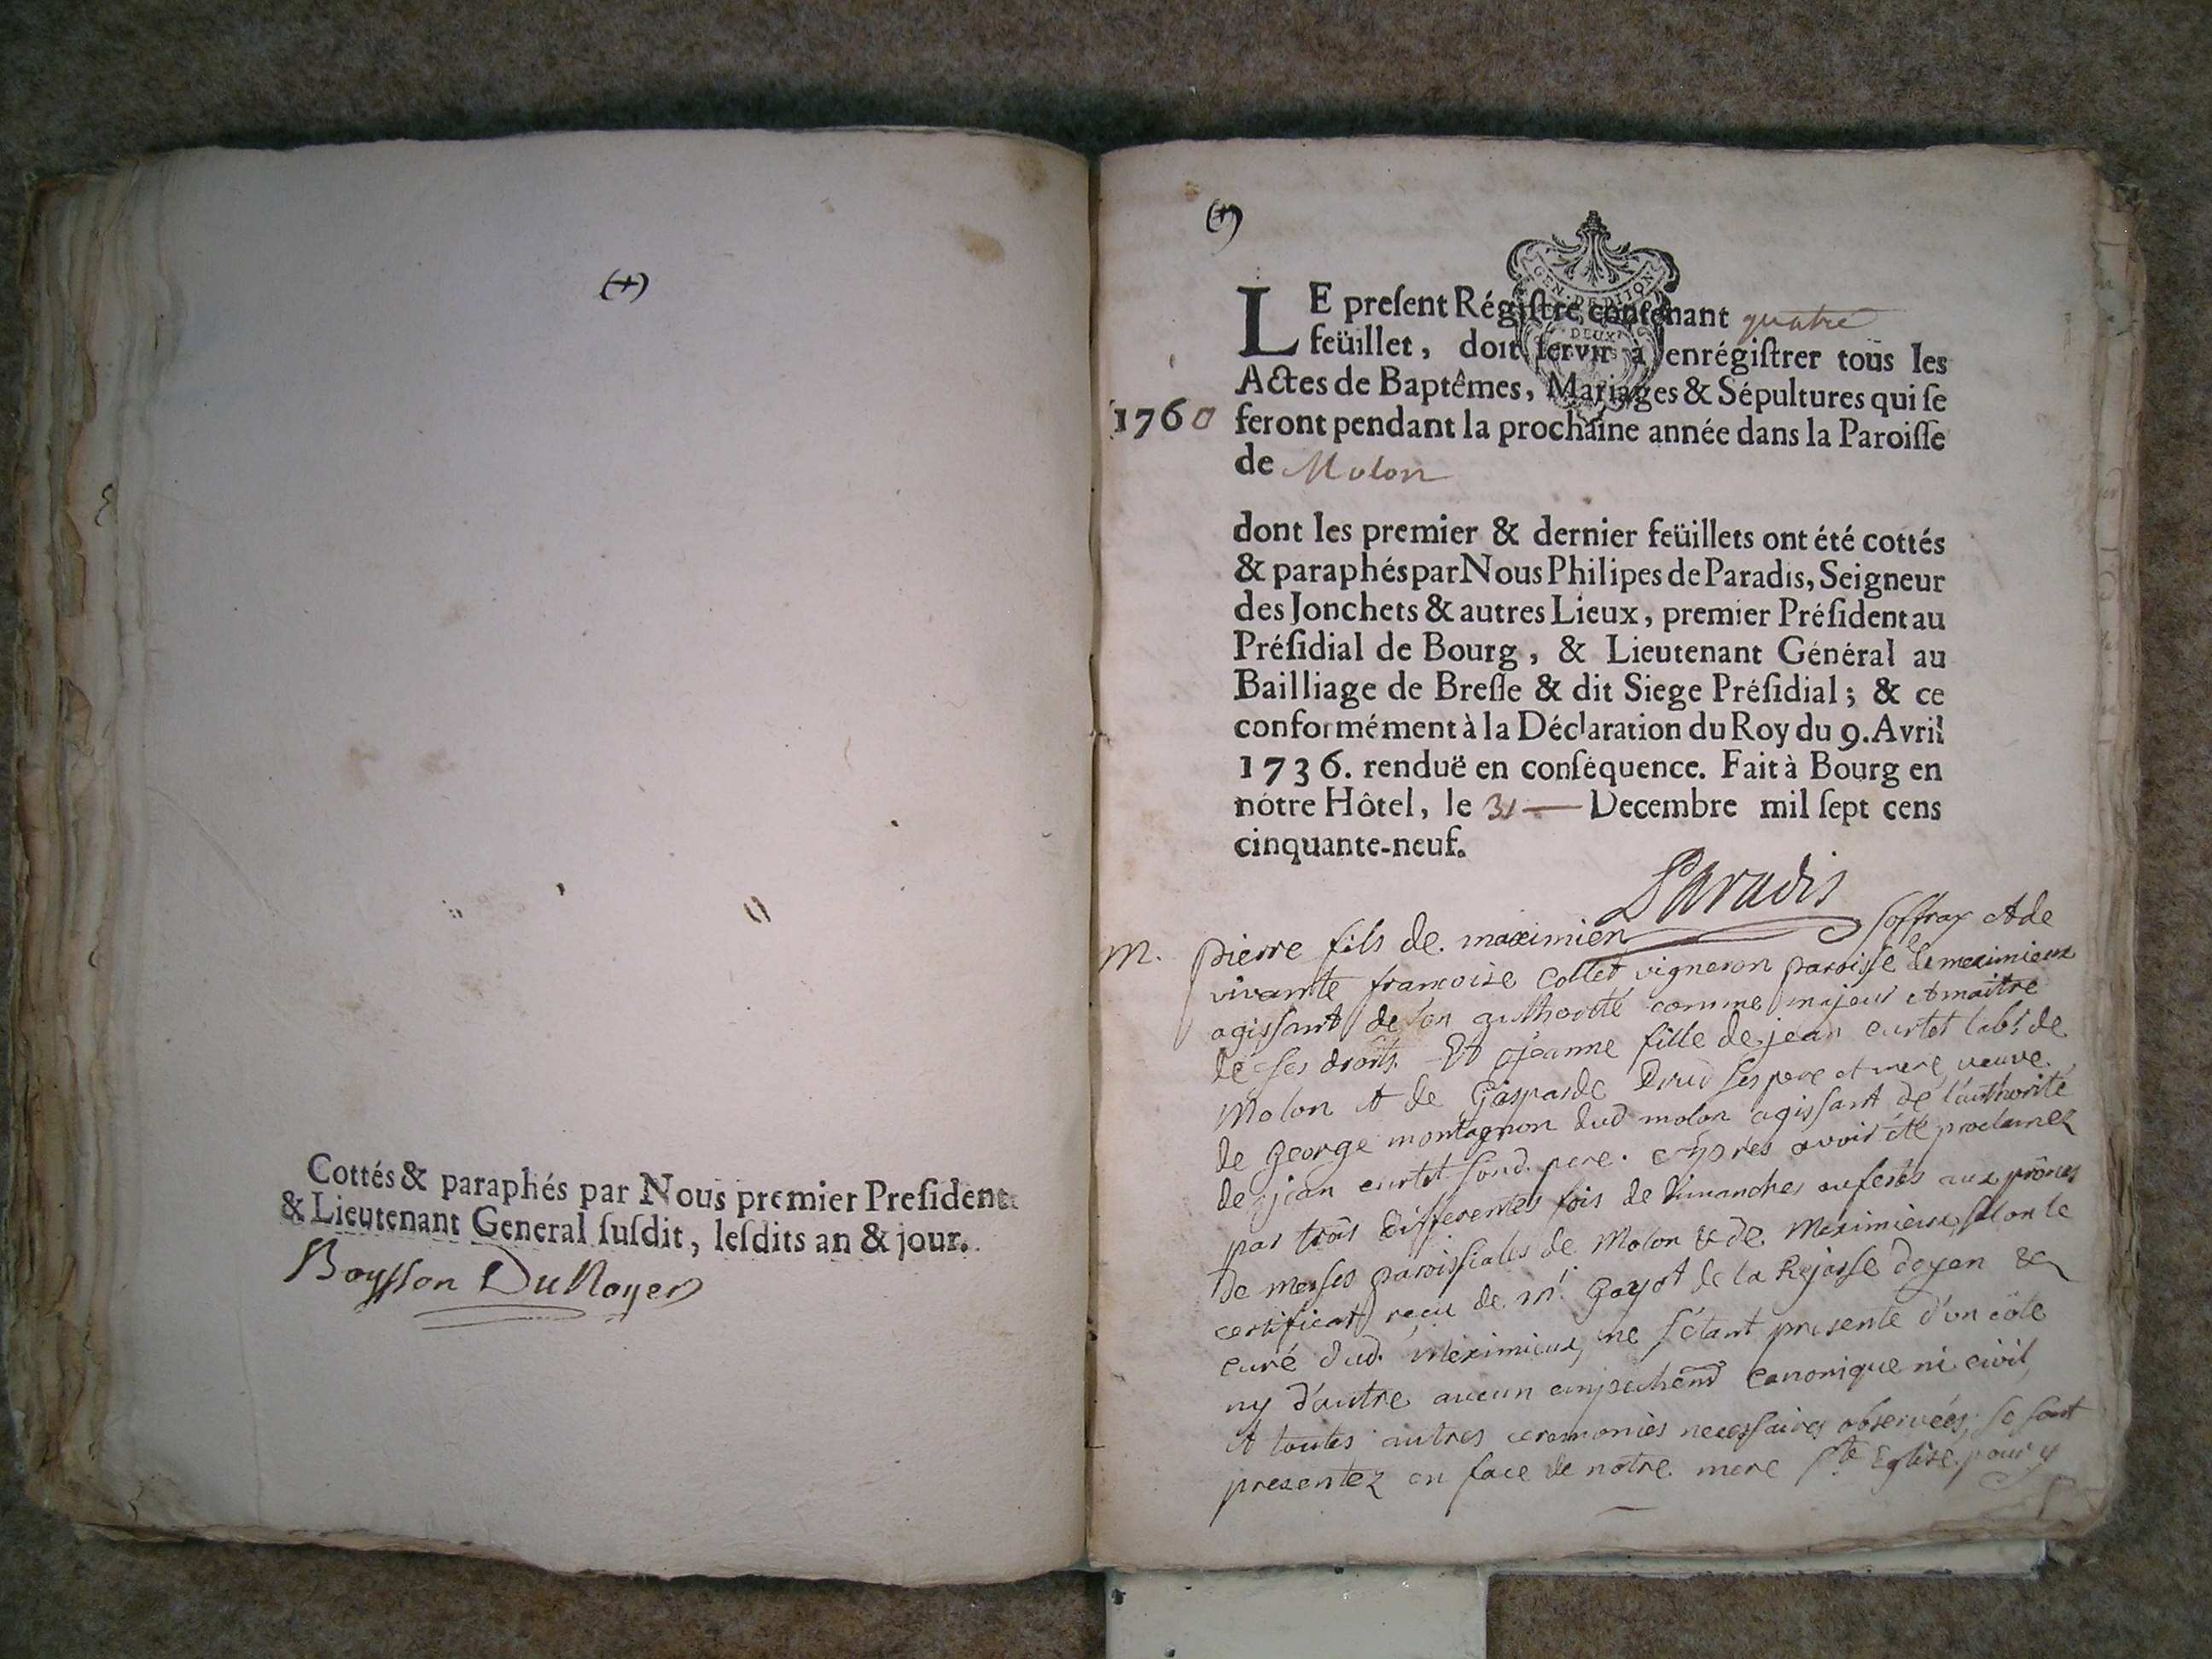 (+)
Cottés & paraphés par Nous premier Preſident
& Lieutenant General ſuſdit, leſdits an & jour.
Boysson DuNoyer
(+)
GEN. DE DIJON
DEUX
LE preſent Régiſtre contenant quatre
feüillet, doit ſervir à enrégiſtrer tous les
Actes de Baptêmes, Mariages & Sépultures qui ſe
1760 feront pendant la prochaine année dans la Paroiſſe
de Molon
dont les premier & dernier feüillets ont été cottés
& paraphés par Nous Philipes de Paradis, Seigneur
des Jonchets & autres Lieux, premier Préſident au
Préſidial de Bourg, & Lieutenant Général au
Bailliage de Breſſe & dit Siege Préſidial; & ce
conformément à la Déclaration du Roy du 9. Avril
1736. renduë en conſéquence. Fait à Bourg en
nôtre Hôtel, le 31 — Decembre mil ſept cens
cinquante-neuf.
Paradis
m. pierre fils de maximien soffray et de
vivante francoise collet vigneron paroisse de meximieux
agissant de son authorité comme majeur et maitre
de ses droits. Et jeanne fille de jean curtet lab.r de
Molon et de Gasparde ses pere et mere, veuve
de george montagnon dud molon agissant de l'authorité
de jean curtet sond. pere. apres avoir été proclamez
par trois differentes fois de dimanches ou festes aux prônes
de messes paroissiales de Molon & de Meximieux, selon le
certificat reçu de mr. Gayot de la Rejasse doyen &
curé dud. Meximieux, ne s'étant presenté d'un côte
ny d'autre aucun empechemt canonique ni civil,
et toutes autres ceremonies necessaires observées; se sont
presentez en face de notre mere ste Eglise pour y